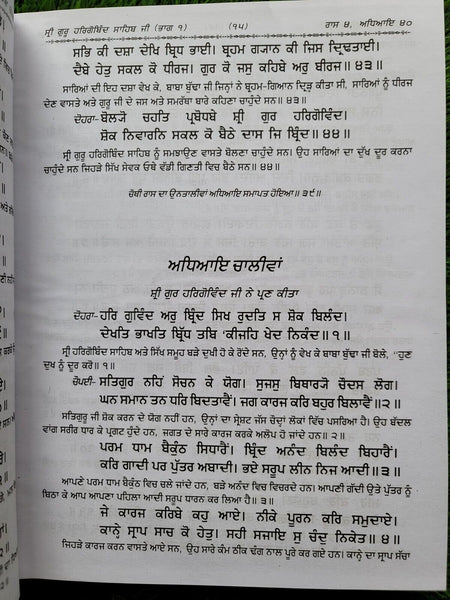 ਸ੍ਰੀ ਗੁਰੂ ਹਰਿਗੋਬਿੰਦ ਸਾਹਿਬ ਜੀ (ਭਾਗ ੧) (੧੫) ਰਾਸ ੪, ਅਧਿਆਇ ੪੦
ਸਭਿ ਕੀ ਦਸ਼ਾ ਦੇਖਿ ਬ੍ਰਿਧ ਭਾਈ। ਬ੍ਰਹਮ ਗਯਾਨ ਕੀ ਜਿਸ ਦ੍ਰਿਢਤਾਈ।
ਦੈਬੇ ਹੇਤੁ ਸਕਲ ਕੋ ਧੀਰਜ। ਗੁਰ ਕੋ ਜਸੁ ਕਹਿਬੇ ਅਰੁ ਬੀਰਜ॥੪੩॥
ਸਾਰਿਆਂ ਦੀ ਇਹ ਦਸ਼ਾ ਵੇਖ ਕੇ, ਬਾਬਾ ਬੁੱਢਾ ਜੀ ਜਿਨਾਂ ਨੇ ਬ੍ਰਹਮ-ਗਿਆਨ ਦ੍ਰਿੜ੍ਹ ਕੀਤਾ ਸੀ, ਸਾਰਿਆਂ ਨੂੰ ਧੀਰਜ
ਦੇਣ ਵਾਸਤੇ ਅਤੇ ਗੁਰੂ ਜੀ ਦੇ ਜਸ ਅਤੇ ਸਮਰੱਥਾ ਬਾਰੇ ਕਹਿਣਾ ਚਾਹੁੰਦੇ ਸਨ॥੪੩॥
ਦੋਹਰਾ- ਬੋਲਯੋ ਚਹਤਿ ਪ੍ਰਬੋਧਬੇ ਸ਼੍ਰੀ ਗੁਰ ਹਰਿਗੋਵਿੰਦ।
ਸ਼ੋਕ ਨਿਵਾਰਨਿ ਸਕਲ ਕੋ ਬੈਠੇ ਦਾਸ ਜਿ ਬ੍ਰਿੰਦ॥੪੪॥
ਸ੍ਰੀ ਗੁਰੂ ਹਰਿਗੋਬਿੰਦ ਸਾਹਿਬ ਨੂੰ ਸਮਝਾਉਣ ਵਾਸਤੇ ਬੋਲਣਾ ਚਾਹੁੰਦੇ ਸਨ। ਉਹ ਸਾਰਿਆਂ ਦਾ ਦੁੱਖ ਦੂਰ ਕਰਨਾ
ਚਾਹੁੰਦੇ ਸਨ ਜਿਹੜੇ ਸਿੱਖ ਸੇਵਕ ਓਥੇ ਵੱਡੀ ਗਿਣਤੀ ਵਿਚ ਬੈਠੇ ਸਨ॥੪੪॥
ਚੌਥੀ ਰਾਸ ਦਾ ਉਨਤਾਲੀਵਾਂ ਅਧਿਆਇ ਸਮਾਪਤ ਹੋਇਆ॥੩੯॥
ਅਧਿਆਇ ਚਾਲੀਵਾਂ
ਸ਼੍ਰੀ ਗੁਰ ਹਰਿਗੋਵਿੰਦ ਜੀ ਨੇ ਪ੍ਰਣ ਕੀਤਾ
ਦੋਹਰਾ- ਹਰਿ ਗੁਵਿੰਦ ਅਰੁ ਬ੍ਰਿੰਦ ਸਿਖ ਰੁਦਤਿ ਸ ਸ਼ੋਕ ਬਿਲੰਦ।
ਦੇਖਤਿ ਭਾਖਤਿ ਬ੍ਰਿੱਧ ਤਬਿ 'ਕੀਜਹਿ ਖੇਦ ਨਿਕੰਦ॥੧॥
ਸ੍ਰੀ ਹਰਿਗੋਬਿੰਦ ਸਾਹਿਬ ਅਤੇ ਸਿੱਖ ਸਮੂਹ ਬੜੇ ਦੁਖੀ ਹੋ ਕੇ ਰੋਂਦੇ ਸਨ, ਉਨ੍ਹਾਂ ਨੂੰ ਵੇਖ ਕੇ ਬਾਬਾ ਬੁੱਢਾ ਜੀ ਬੋਲੇ, "ਹੁਣ
ਦੁਖ ਨੂੰ ਦੂਰ ਕਰੋ॥੧॥
ਚੌਪਈ- ਸਤਿਗੁਰ ਨਹਿਂ ਸੋਚਨ ਕੇ ਯੋਗ। ਸੁਜਸੁ ਬਿਥਾਰਯੋ ਚੌਦਸ ਲੋਗ।
ਘਨ ਸਮਾਨ ਤਨ ਧਰਿ ਬਿਦਤਾਵੈਂ। ਜਗ ਕਾਰਜ ਕਰਿ ਬਹੁਰ ਬਿਲਾਵੈਂ॥੨॥
ਸਤਿਗੁਰੂ ਜੀ ਸ਼ੋਕ ਕਰਨ ਦੇ ਯੋਗ ਨਹੀਂ ਹਨ, ਉਨ੍ਹਾਂ ਦਾ ਸ੍ਰੇਸ਼ਟ ਜੱਸ ਚੌਦ੍ਹਾਂ ਲੋਕਾਂ ਵਿੱਚ ਪਸਰਿਆ ਹੈ। ਉਹ ਬੱਦਲ
ਵਾਂਗ ਸਰੀਰ ਧਾਰ ਕੇ ਪ੍ਰਗਟ ਹੁੰਦੇ ਹਨ, ਜਗਤ ਦੇ ਸਾਰੇ ਕਾਰਜ ਕਰਕੇ ਅਲੋਪ ਹੋ ਜਾਂਦੇ ਹਨ॥੨॥
ਪਰਮ ਧਾਮ ਬੈਕੁੰਠ ਸਿਧਾਰੈਂ। ਬ੍ਰਿੰਦ ਅਨੰਦ ਬਿਲੰਦ ਬਿਹਾਰੈਂ।
ਕਰਿ ਗਾਦੀ ਪਰ ਪੁੱਤਰ ਅਬਾਦੀ। ਭਏ ਸਰੂਪ ਲੀਨ ਨਿਜ ਆਦੀ॥੩॥
ਆਪਣੇ ਪਰਮ ਧਾਮ ਬੈਕੁੰਠ ਵਿਚ ਚਲੇ ਜਾਂਦੇ ਹਨ, ਬੜੇ ਅਨੰਦ ਵਿਚ ਵਿਚਰਦੇ ਹਨ। ਆਪਣੀ ਗੱਦੀ ਉਤੇ ਪੁੱਤਰ ਨੂੰ
ਬਿਠਾ ਕੇ ਆਪ ਆਪਣਾ ਪਹਿਲਾ ਆਦੀ ਸਰੂਪ ਧਾਰਨ ਕਰ ਲਿਆ ਹੈ॥੩॥
ਜੇ ਕਾਰਜ ਕਰਿਬੇ ਕਹੁ ਆਏ। ਨੀਕੇ ਪੂਰਨ ਕਰਿ ਸਮੁਦਾਏ।
ਕਾਨ੍ਹੇ ਸ੍ਰਾਪ ਸਾਚ ਕੋ ਹੇਤੁ। ਸਹੀ ਸਜਾਇ ਸੁ ਚੰਦੁ ਨਿਕੇਤ॥੪॥
ਜਿਹੜੇ ਕਾਰਜ ਕਰਨ ਵਾਸਤੇ ਆਏ ਸਨ, ਉਹ ਸਾਰੇ ਕੰਮ ਠੀਕ ਢੰਗ ਨਾਲ ਪੂਰੇ ਕਰ ਗਏ ਹਨ। ਕਾਨ੍ਹੇ ਦਾ ਸ੍ਰਾਪ ਸੱਚਾ